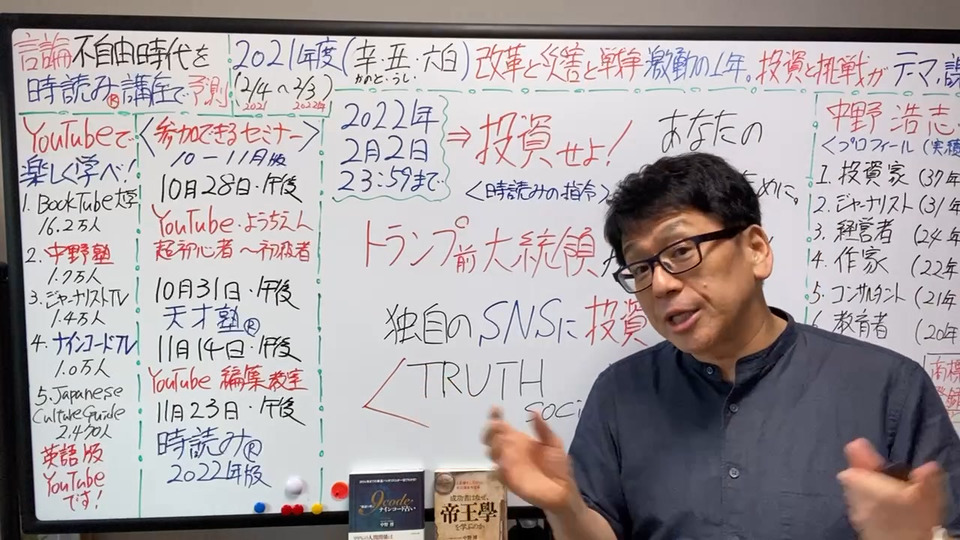 言論不自由時代を
時読み®講座で予測
2021年度(辛・丑・六白)改革と災害と戦争激動の1年。投資と挑戦がテーマ
かのと・うし
(2/4〜2/3)
2021 2022年
YouTubeで
楽しく学べ!
1. BookTube大学
16.2万人
2. 中野塾
1.7万人
3. ジャーナリストTV
1.4万人
4. ナインコードTV
1.0万人
5. Japanese
Culture Guide
2,470人
英語版
YouTube
です!
<参加できるセミナー>
10-11月版
10月28日・午後
YouTube・ようちえん
超初心者〜初級者
10月31日・午後
天才塾®
11月14日・午後
YouTube 編集教室
11月23日・午後
時読み®
2022年版
2022年
2月2日
23:59まで
⇒投資せよ!
あなたの
<時読みの指令>
ために。
トランプ前大統領が
独自のSNSに投資
<TRUTH
soci
中野 浩志
<プロフィール(実積
1. 投資家(37年
2. ジャーナリスト(31年
3. 経営者(24年
4. 作家(22年
5. コンサルタント(21年
6. 教育者(20年
9code
ナインコード占い
中野 博
成功者はなぜ、
帝王學
を学ぶのか
中野 博